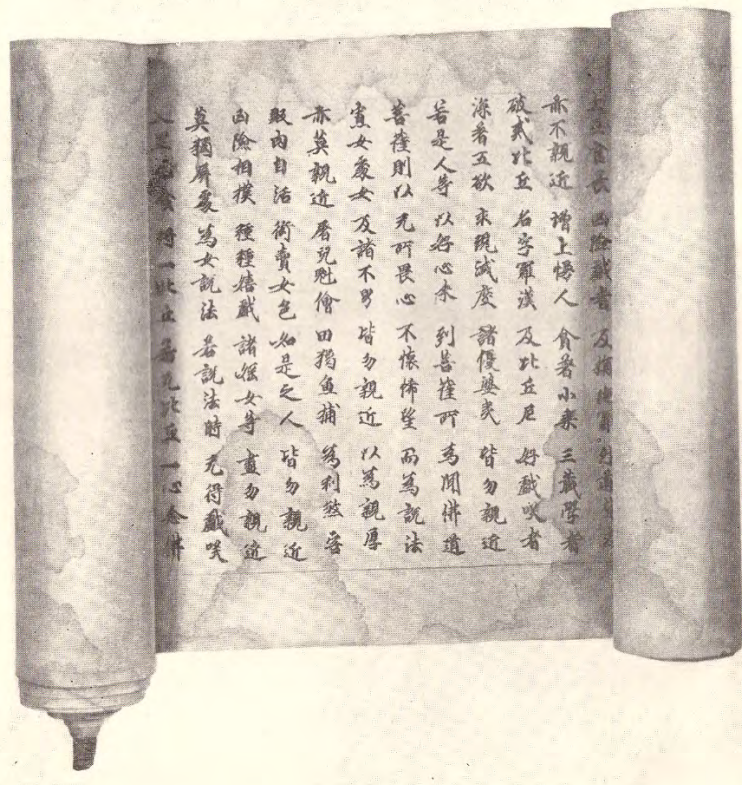 大臣官長 凶險戲者 及旃陀羅
亦不親近 增上慢人 貪著小乘 三藏學者
破戒比丘 名字羅漢 及比丘尼 好戲咲者
深著五欲 求現滅度 諸優婆夷 皆勿親近
若是人等 以好心来 到菩薩所 為聞佛道
菩薩則以 无所畏心 不懷悕望 而為説法
寡女處女 及諸不男 皆勿親近 以為親厚
亦莫親近 屠兒魁儈 田獦魚捕 為利煞害
販肉自活 衒賣女色 如是之人 皆勿親近
凶險相撲 種種嬉戲 諸婬女等 盡勿親近
莫獨屏處 為女説法 若説法時 无得戲咲
入里乞食 將一比丘 若无比丘 一心念佛